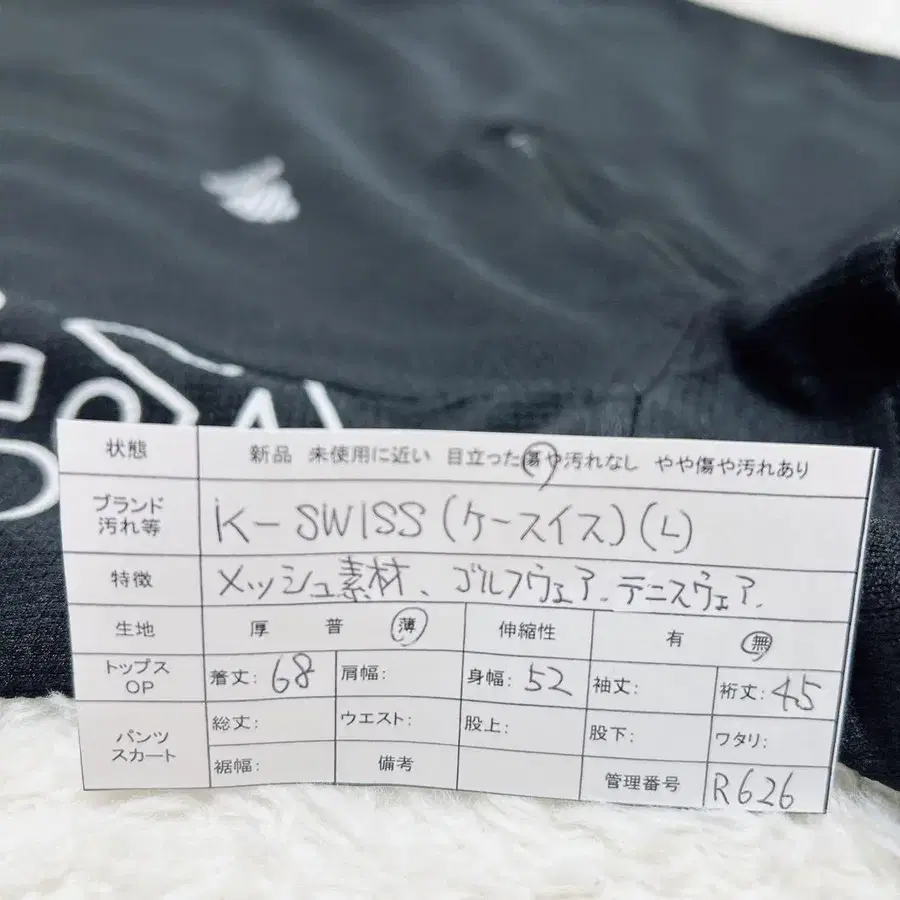 状態 新品 未使用に近い 目立った傷や汚れなし やや傷や汚れあり
ブランド
汚れ等
K-SWISS(ケースイス)(L)
特徴 メッシュ素材、ゴルフウェア、テニスウェア、
生地 厚 普 薄 伸縮性 有 無
トップス
OP
着丈: 68 肩幅: 身幅: 52 袖丈: 裄丈: 45
パンツ
スカート
総丈: ウエスト: 股上: 股下: ワタリ:
裾幅: 備考 管理番号 R626